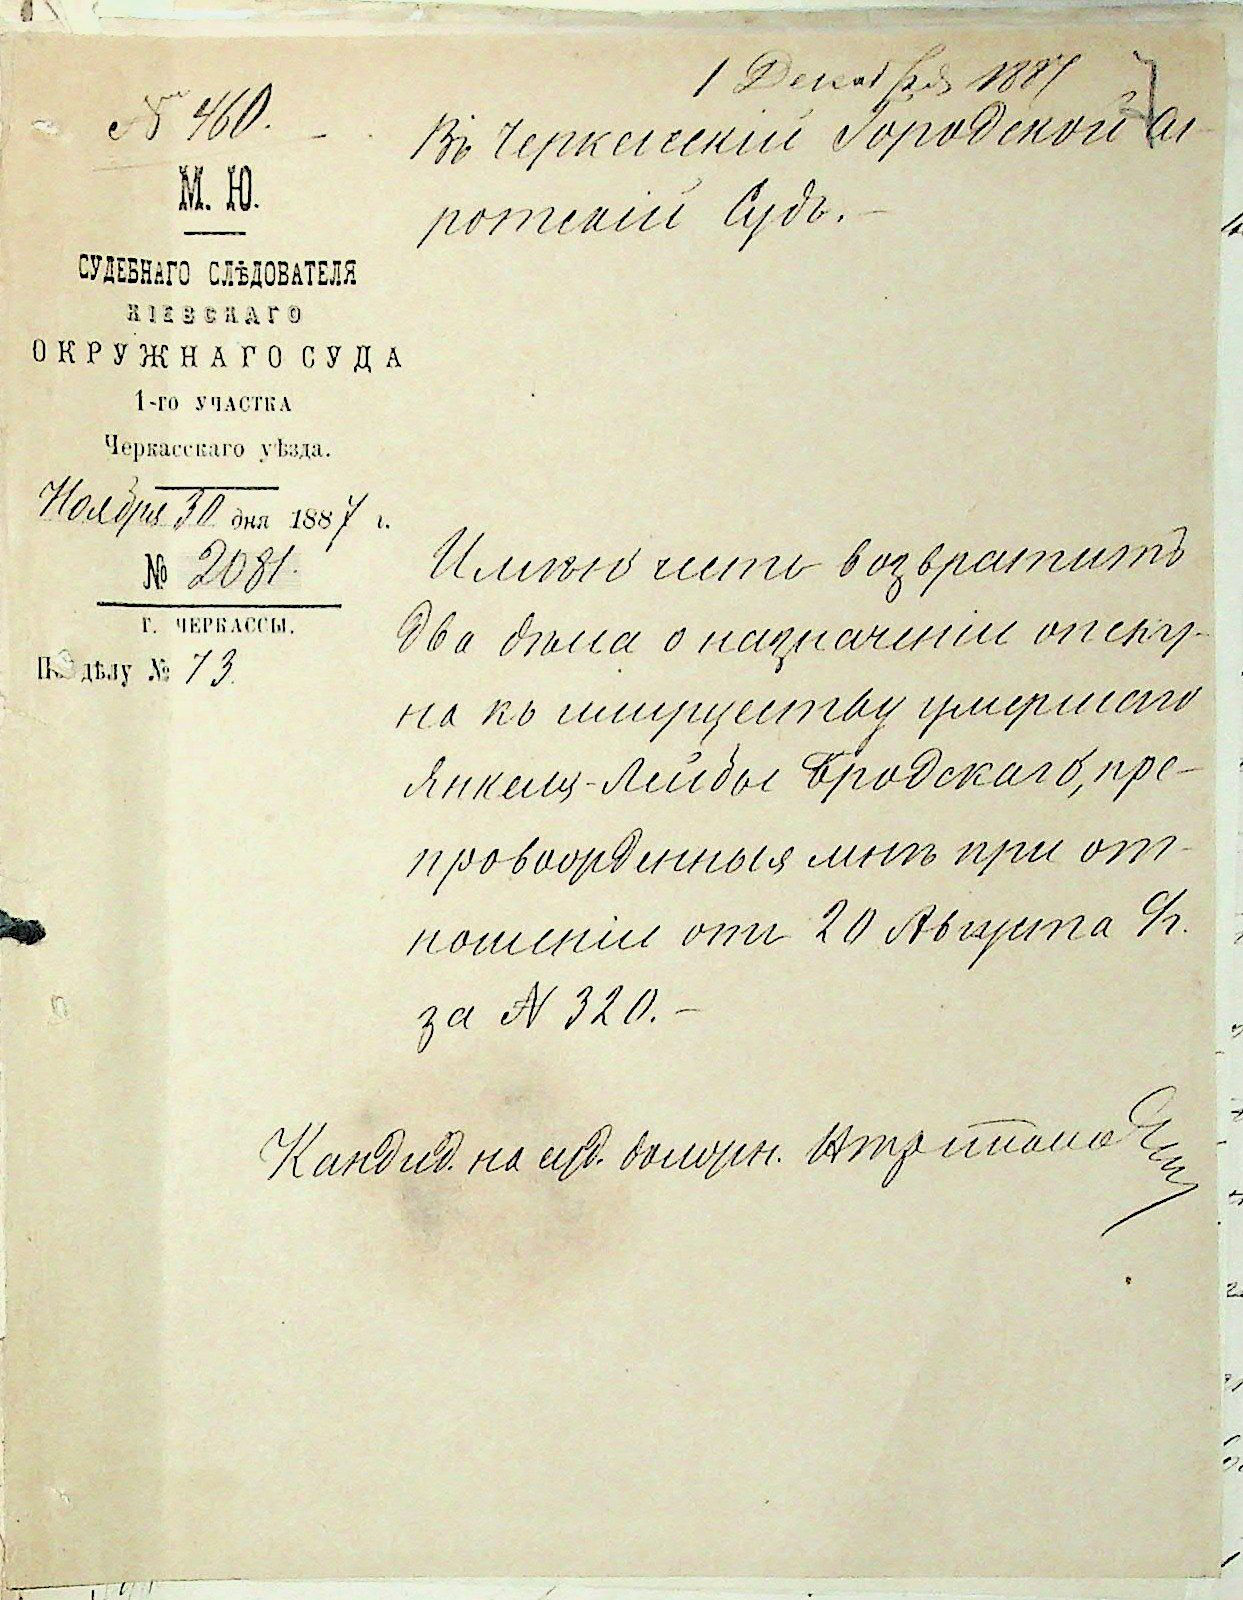 1 Декабря 1887
№ 460.
Въ Черкасскій Городской Си-
ротскій Судъ.
М. Ю.
СУДЕБНАГО СЛѢДОВАТЕЛЯ
КІЕВСКАГО
ОКРУЖНАГО СУДА
1-го УЧАСТКА
Черкасскаго уѣзда.
Ноября 30 дня 1887 г.
№ 2081.
Г. ЧЕРКАССЫ.
По дѣлу № 73.
Имѣю честь возвратить
два дѣла о назначеніи опеку-
на къ имуществу умершаго
Янкеля-Лейбы Бродскаго, пре-
провожденныя мнѣ при от-
ношеніи отъ 20 Августа
за № 320.
Кандид. на суд. должн.